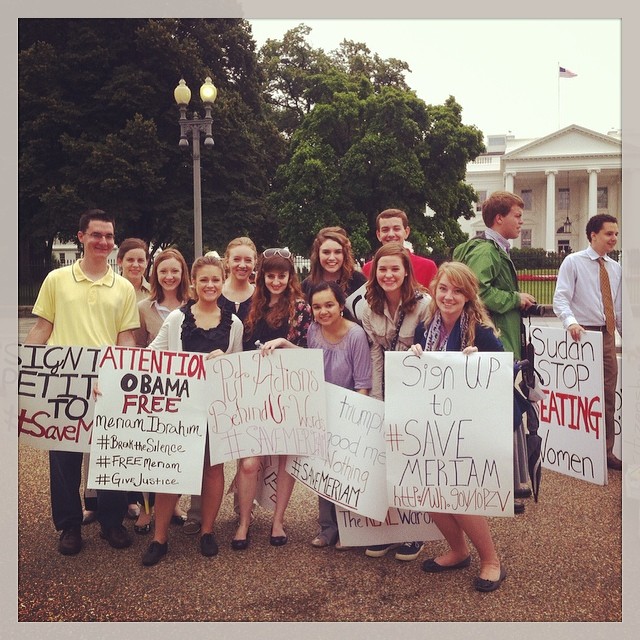 SIGN T
PETIT
TO
#SaveM
ATTENTION
OBAMA
FREE
Meriam Ibrahim
#BreaktheSilence
#FREEMeriam
#GiveJustice
Put Actions
Behind Ur Words
#SAVEMERIAM
triumph
good me
Nothing
#SAVEMERIAM
The REAL War on
Sign UP
to
#SAVE
MERIAM
Sudan
STOP
EATING
Women